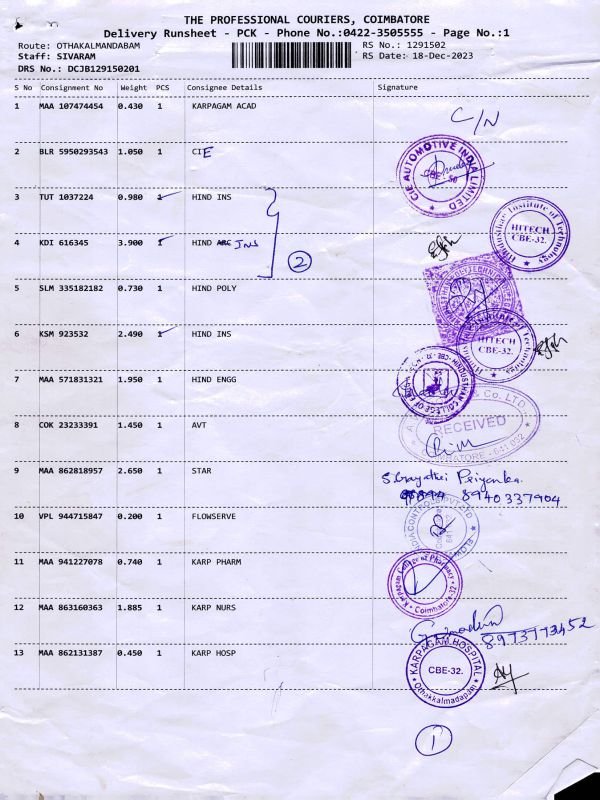 THE PROFESSIONAL COURIERS, COIMBATORE
Delivery Runsheet - PCK - Phone No.:0422-3505555 - Page No.:1
Route: OTHAKALMANDABAM
RS No.: 1291502
Staff: SIVARAM
RS Date: 18-Dec-2023
DRS No.: DCJB129150201
S No Consignment No Weight PCS Consignee Details Signature
1 MAA 107474454 0.430 1 KARPAGAM ACAD
C/N
2 BLR 5950293543 1.050 1 CIE
CIE AUTOMOTIVE INDIA LIMITED
3 TUT 1037224 0.980 1 HIND INS
Hindusthan Institute of Technology
HITECH
CBE-32.
4 KDI 616345 3.900 1 HIND ARC INS
2
5 SLM 335182182 0.730 1 HIND POLY
6 KSM 923532 2.490 1 HIND INS
HITECH
CBE-32.
7 MAA 571831321 1.950 1 HIND ENGG
8 COK 23233391 1.450 1 AVT
& Co. LTD.
RECEIVED
9 MAA 862818957 2.650 1 STAR
S. Gayathri Priyanka.
8940337904
10 VPL 944715847 0.200 1 FLOWSERVE
11 MAA 941227078 0.740 1 KARP PHARM
Karpagam College of Pharmacy
Coimbatore-32
12 MAA 863160363 1.885 1 KARP NURS
8973773452
13 MAA 862131387 0.450 1 KARP HOSP
KARPAGAM HOSPITAL
CBE-32.
Othakkalmadapam
1